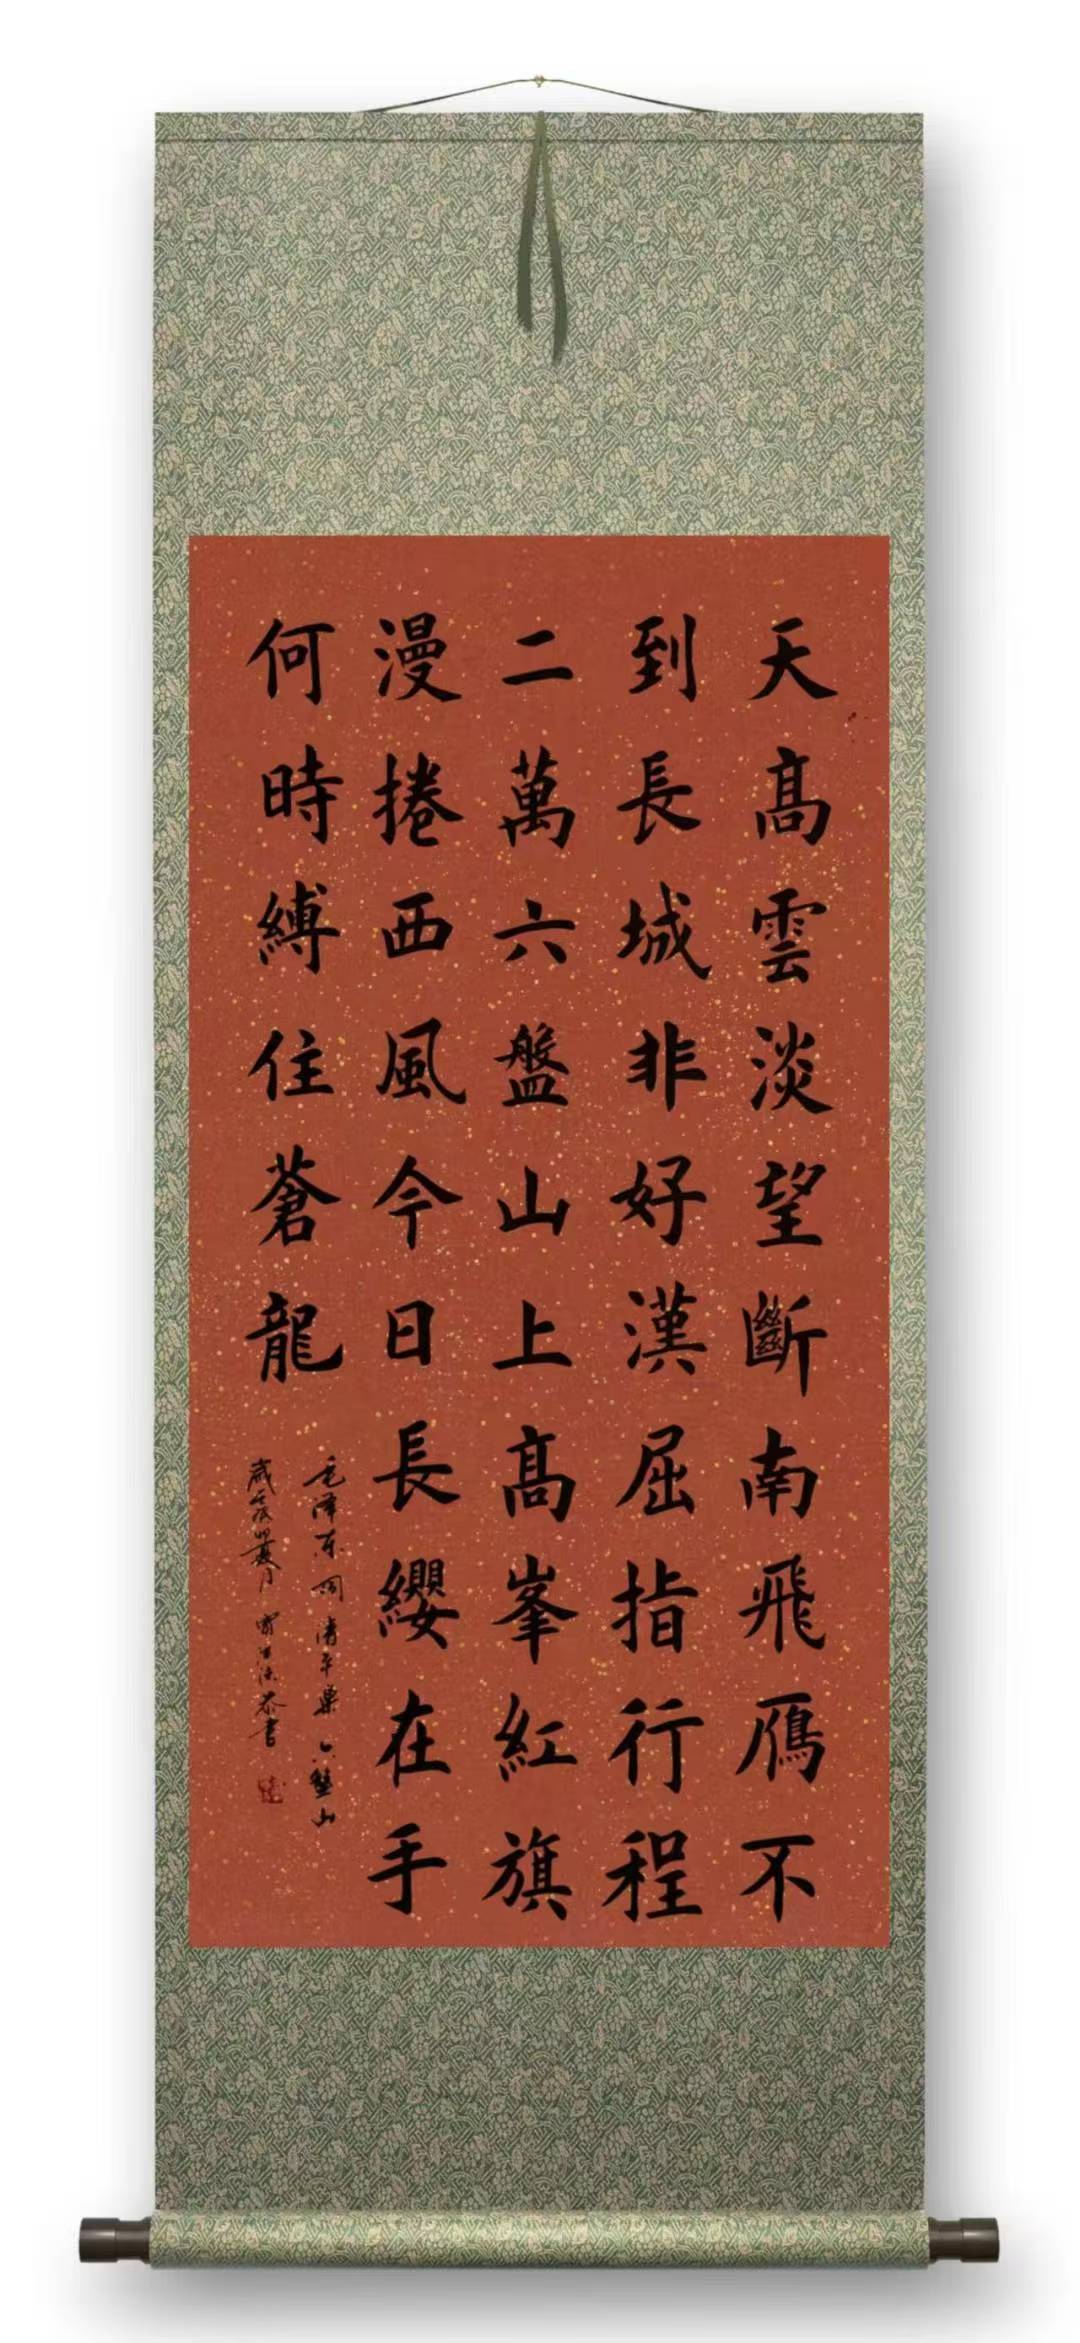 天高雲淡望斷南飛鴈不
到長城非好漢屈指行程
二萬六盤山上高峯紅旗
漫捲西風今日長纓在手
何時縛住蒼龍
毛泽东词清平樂六盤山
歲 夏月 恭書